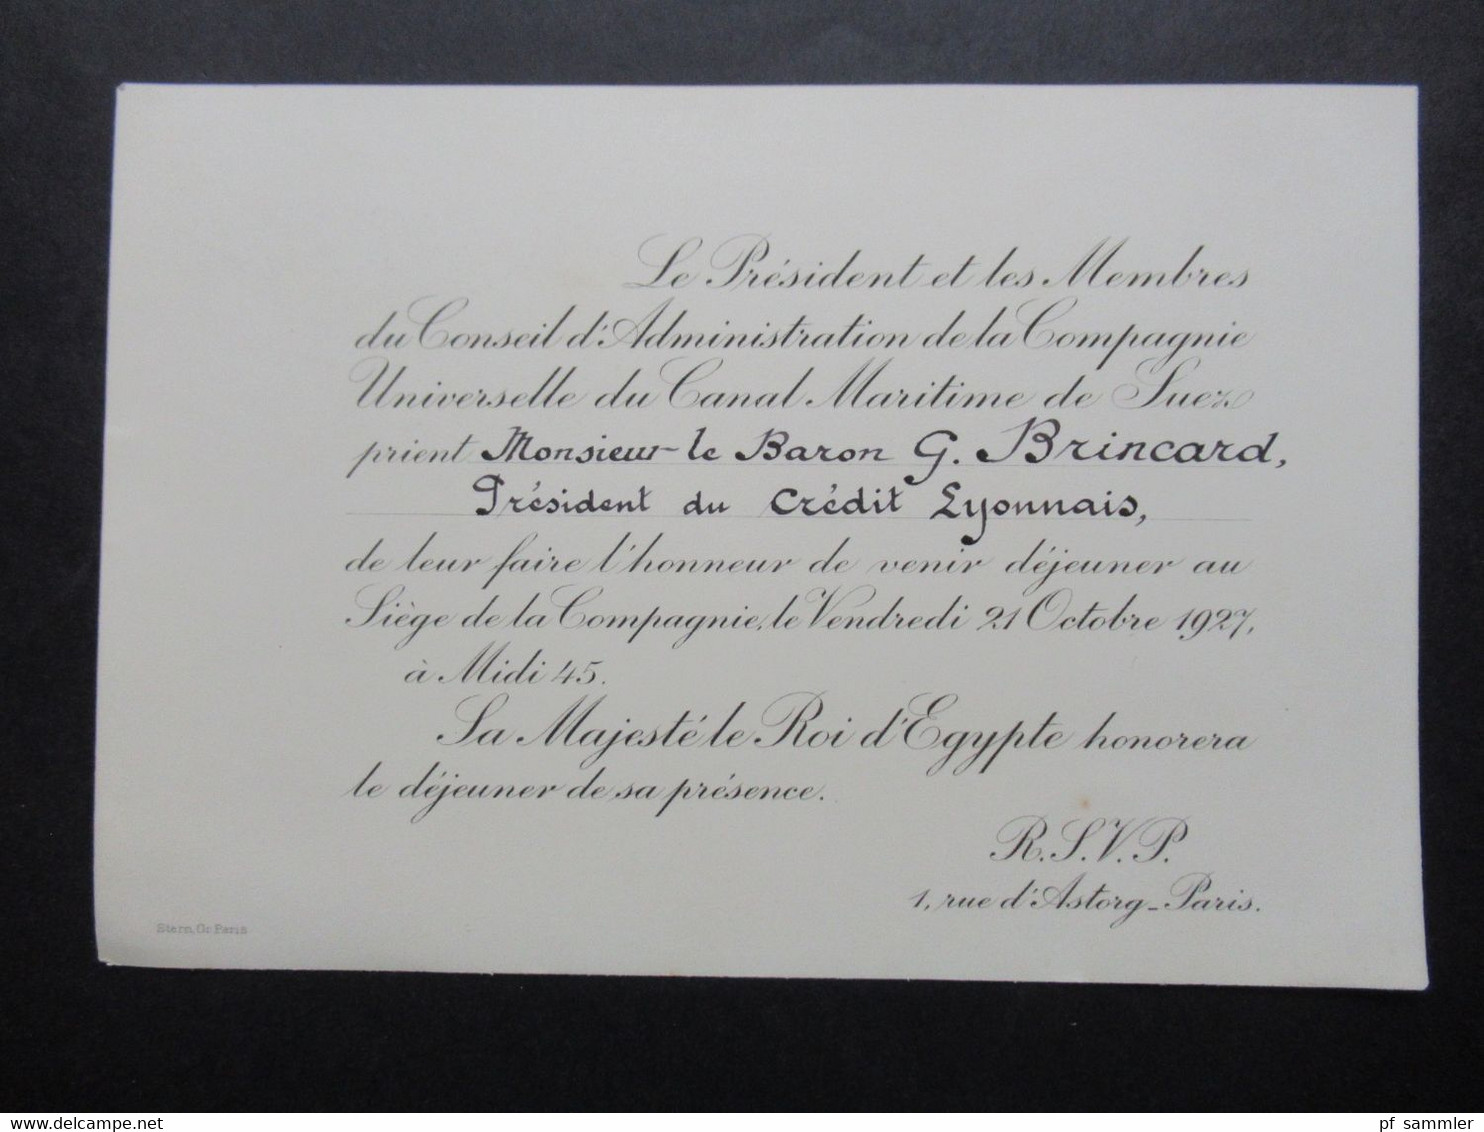 Le Président et les Membres
du Conseil d'Administration de la Compagnie
Universelle du Canal Maritime de Suez
prient Monsieur le Baron G. Brincard,
Président du Crédit Lyonnais,
de leur faire l'honneur de venir déjeuner au
Siège de la Compagnie, le Vendredi 21 Octobre 1927,
à Midi 45.
Sa Majesté le Roi d'Egypte honorera
le déjeuner de sa présence.
R.S.V.P.
1, rue d'Astorg - Paris.
Stern, Gr. Paris
delcampe.net
pf_sammler